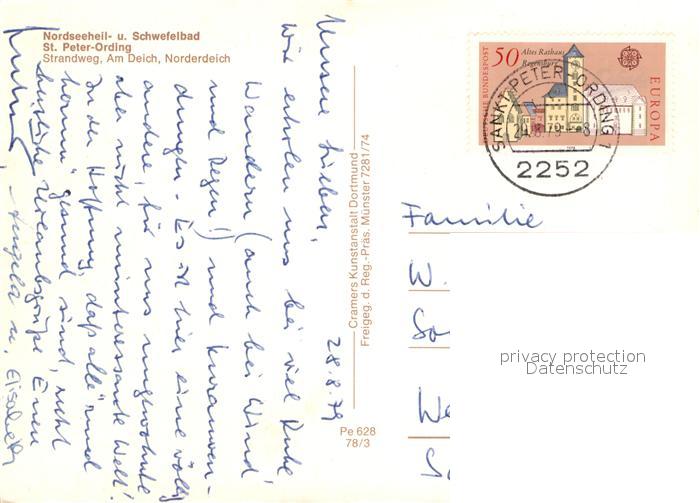 Nordseeheil- u. Schwefelbad
St. Peter-Ording
Strandweg, Am Deich, Norderdeich
Unsere Lieben,
28.8.79
wir erholen uns bei viel Ruhe
Wandern (auch bei Wind
und Regen!) und Kuranwen-
dungen. Es ist hier eine völlig
andere, für uns ungewohnte
aber nicht uninteressante Welt!
In der Hoffnung, daß alle "rund
herum" gesund sind, recht
herzliche Urlaubsgrüße Euren
Angela u. Elisabeth
Cramers Kunstanstalt Dortmund
Freigeg. d. Reg.-Präs. Münster 7281/74
Pe 628
78/3
50 Altes Rathaus
Regensburg
DEUTSCHE BUNDESPOST
EUROPA
SANKT PETER-ORDING 1
2252
Familie
W.
privacy protection
Datenschutz